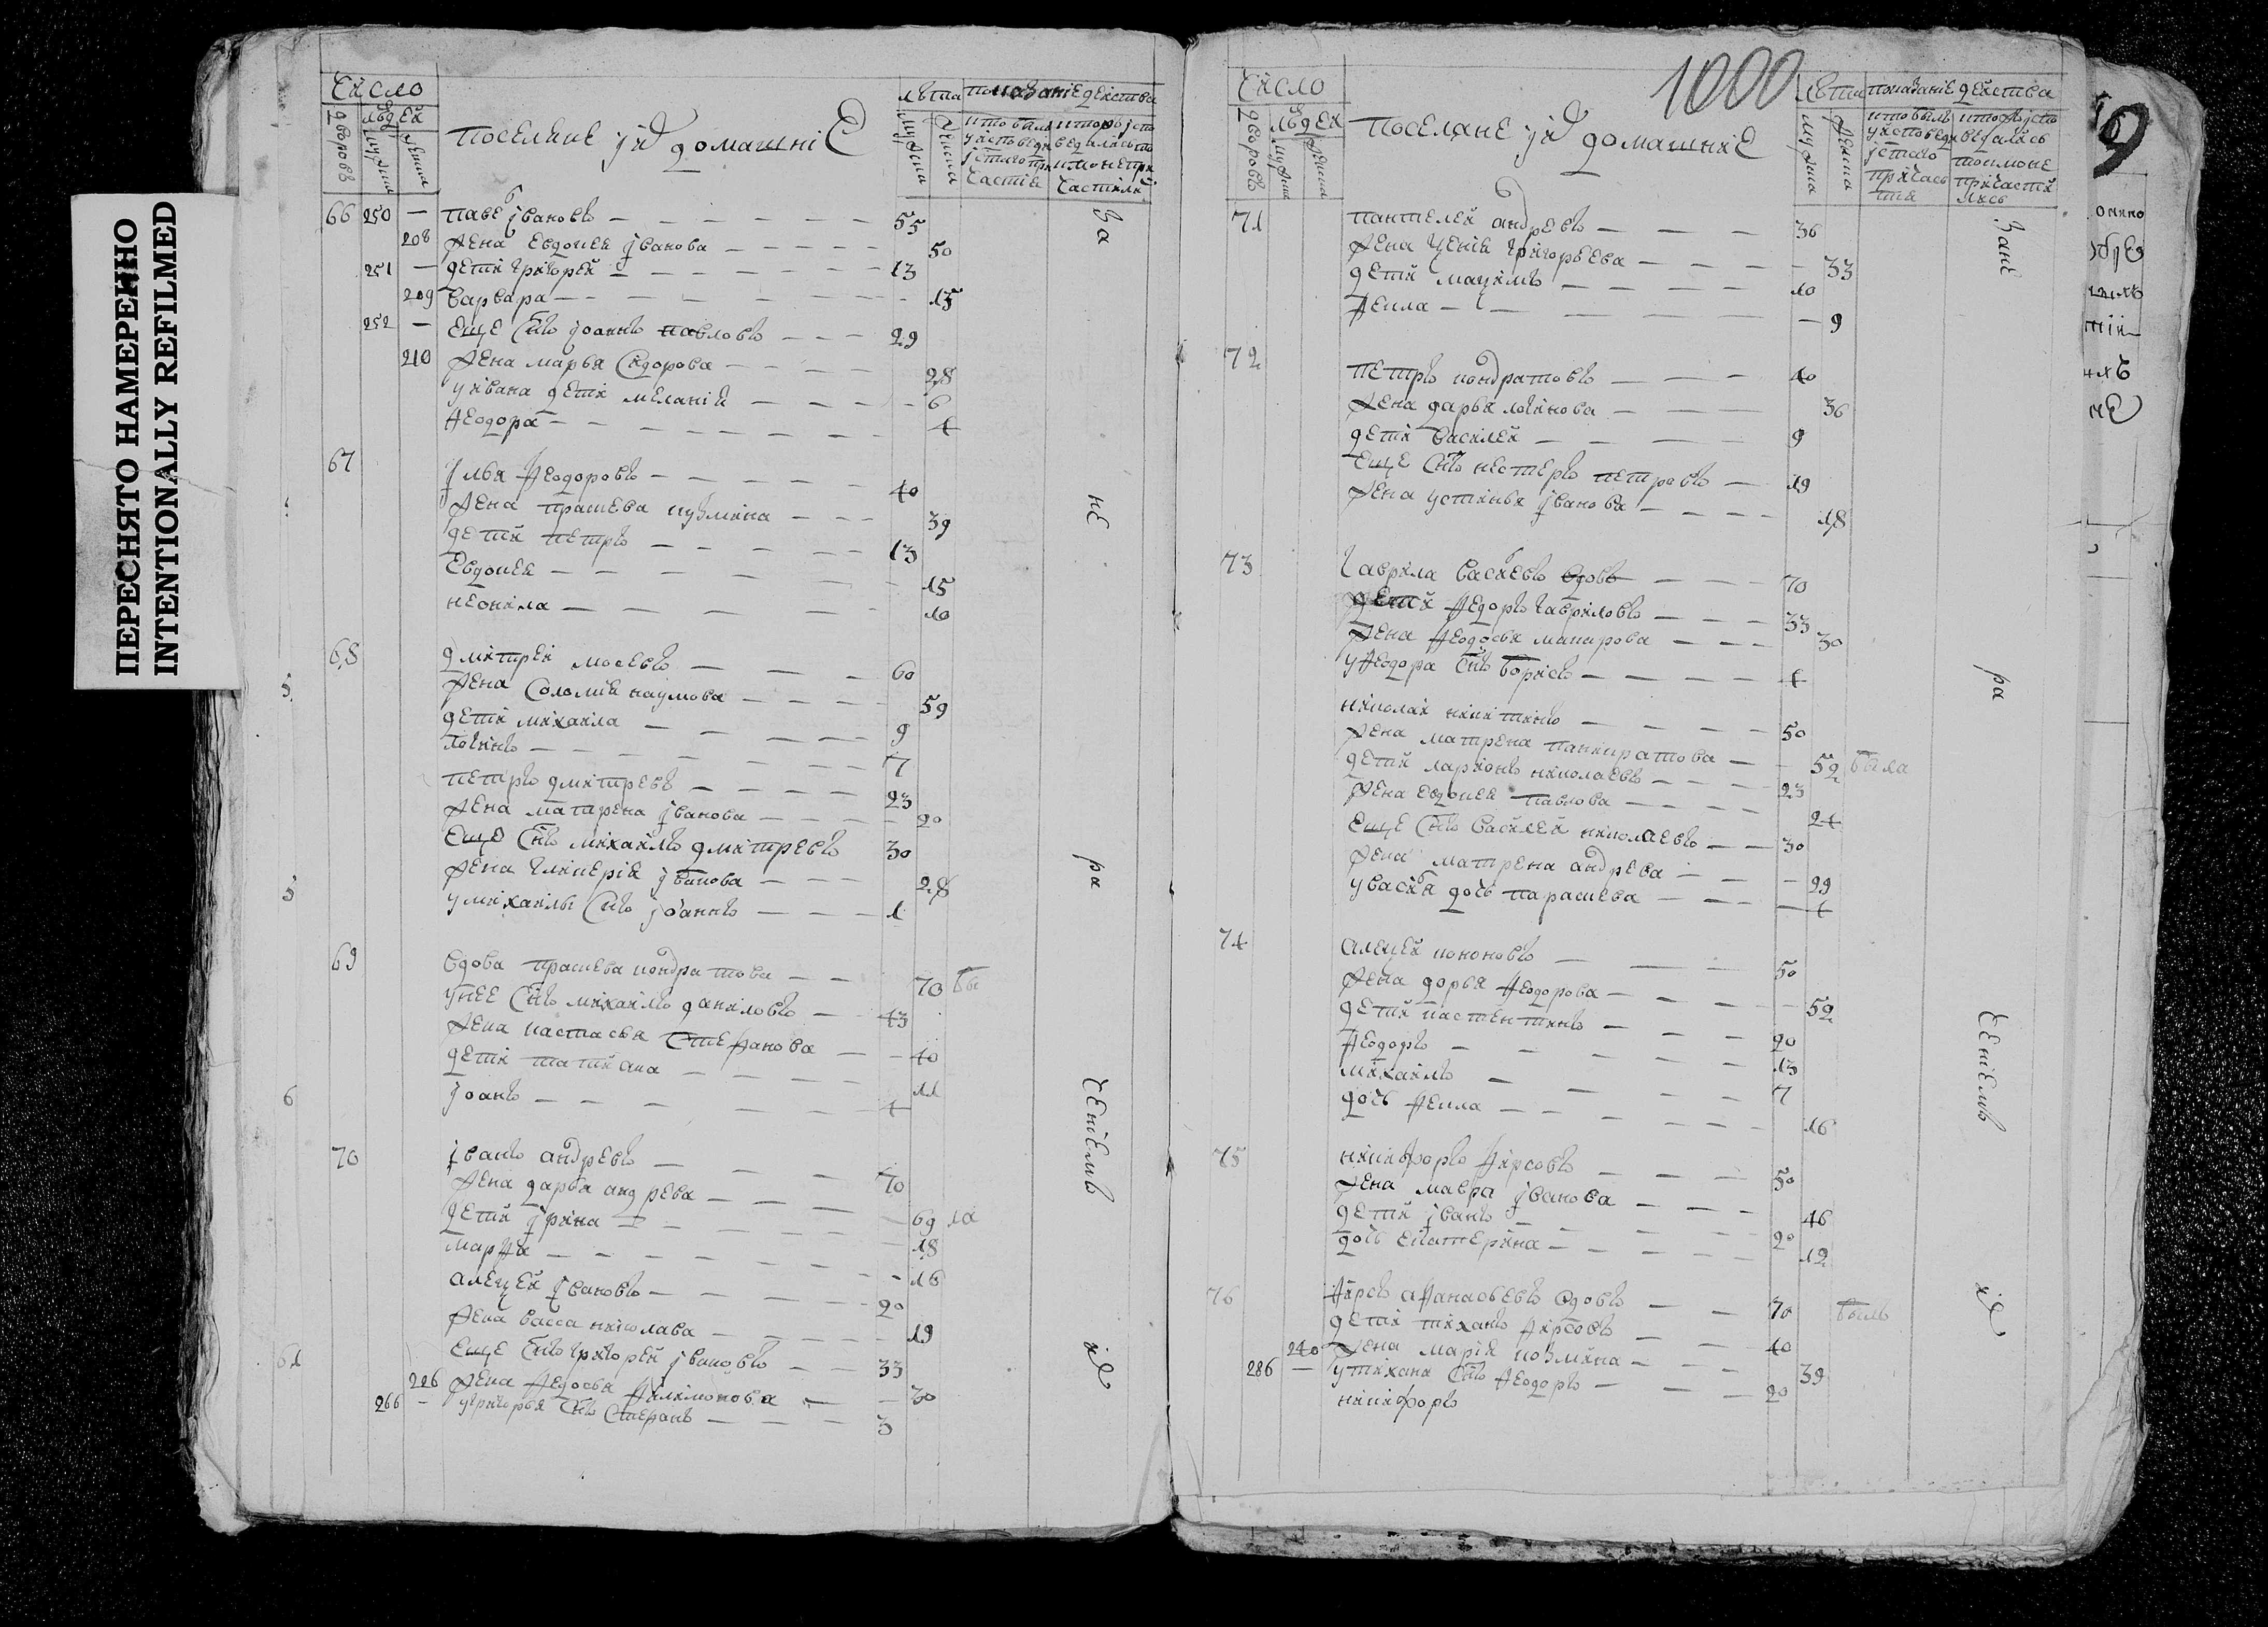 ПЕРЕСНЯТО НАМЕРЕННО
INTENTIONALLY REFILMED
Число
дворовъ
людей
мужска
женска
поселяне и ихъ домашние
лѣта
мужска
женска
показание действа
66 250 — павел ивановъ — 55
208 жена евдокея иванова — 50
251 — дети григорей — 13
209 варвара — 15
252 — еще снъ иоаннъ павловъ — 29
210 жена марья сидорова — 28
у ивана дети меланія — 6
феодора — 4
67 илья феодоровъ — 40
жена праскева кузмина — 39
дети петръ — 13
евдокея — 15
неонила — 10
68 дмитрей мосевъ — 60
жена соломия наумова — 59
дети михаила — 9
логинъ — 7
петръ дмитревъ — 23
жена матрена иванова — 20
еще снъ михаилъ дмитревъ 30
жена гликерия иванова — 28
у михаилы снъ иоаннъ — 1
69 вдова праскева кондратова — 70 бы
у нее снъ михаилъ даниловъ — 43
жена настасья стефанова — 40
дети татиана — 11
иоанъ — 4
70 иванъ андревъ — 70
жена дарья андрева — 69 ла
дети ирина — 18
марфа — 16
алексей ивановъ — 20
жена васса николава — 19
еще снъ григорей ивановъ — 33
226 жена федосья филимонова — 30
266 — у григорья снъ стефанъ — 3
За
не
ра
чениемъ
их
1000
Число
дворовъ
людей
мужска
женска
поселяне и ихъ домашние
лѣта
мужска
женска
показание действа
71 пантелей андревъ — 36
жена ксения григорьева — 33
дети максимъ — 10
фекла — 9
72 петръ кондратовъ — 40
жена дарья логинова — 36
дети василей — 9
еще снъ нестеръ петровъ — 19
жена устинья иванова — 18
73 гаврила васиевъ вдовъ — 70
дети федоръ гавриловъ — 33
жена феодосья макарова — 30
у феодора снъ борисъ — 4
николай никитинъ — 50
жена матрена панкратова — 52 была
дети ларионъ николаевъ — 23
жена евдокея павлова — 24
еще снъ василей николаевъ — 30
жена матрена андрева — 29
у васия дочь параскева — 4
74 алексей кононовъ — 50
жена дорья феодорова — 52
дети костентинъ — 20
феодоръ — 13
михаилъ — 7
дочь фекла — 16
75 никифоръ фирсовъ — 50
жена мавра иванова — 46
дети иванъ — 20
дочь екатерина — 12
76 фирсъ афанасьевъ вдовъ — 70 былъ
дети тиханъ фирсовъ — 40
240 жена мария козмина — 39
286 — у тихана снъ феодоръ — 20
никифоръ
Зане
ра
чениемъ
их